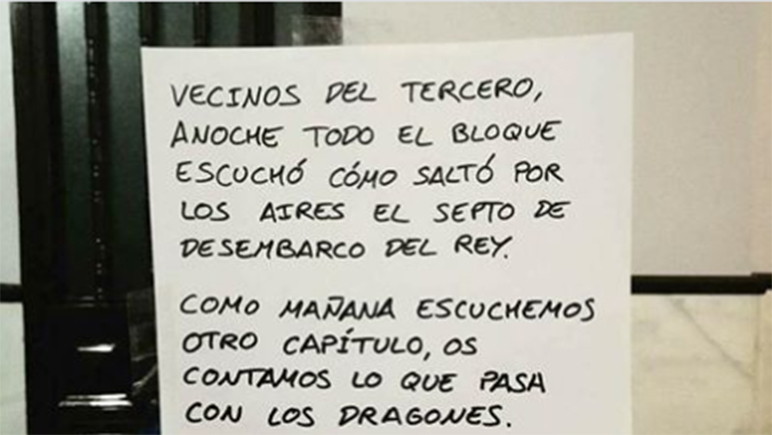 VECINOS DEL TERCERO,
ANOCHE TODO EL BLOQUE
ESCUCHÓ CÓMO SALTÓ POR
LOS AIRES EL SEPTO DE
DESEMBARCO DEL REY.
COMO MAÑANA ESCUCHEMOS
OTRO CAPÍTULO, OS
CONTAMOS LO QUE PASA
CON LOS DRAGONES.